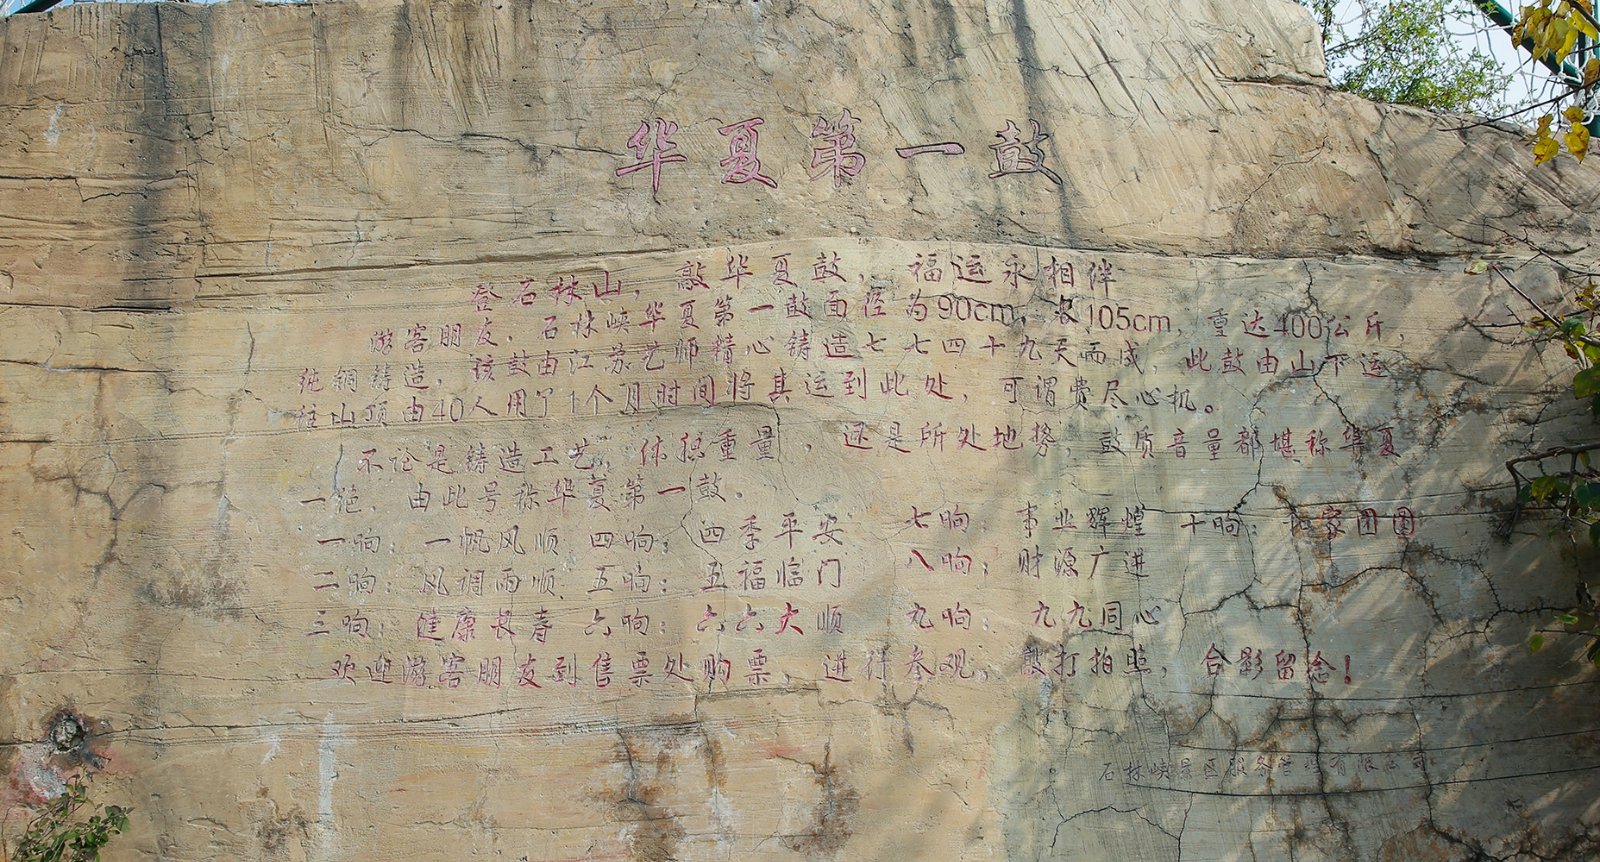 华夏第一鼓
登石林山，敲华夏鼓，福运永相伴
游客朋友，石林峡华夏第一鼓面径为90cm，长105cm，重达400公斤，
纯铜铸造，该鼓由江苏艺师精心铸造七七四十九天而成，此鼓由山下运
往山顶由40人用了1个月时间将其运到此处，可谓费尽心机。
不论是铸造工艺，体积重量，还是所处地势，鼓质音量都堪称华夏
一绝，由此号称华夏第一鼓。
一响：一帆风顺 四响：四季平安 七响：事业辉煌 十响：家团圆
二响：风调雨顺 五响：五福临门 八响：财源广进
三响：健康长春 六响：六六大顺 九响：九九同心
欢迎游客朋友到售票处购票，进行参观，敲打拍照，合影留念！
石林峡景区服务管理有限公司